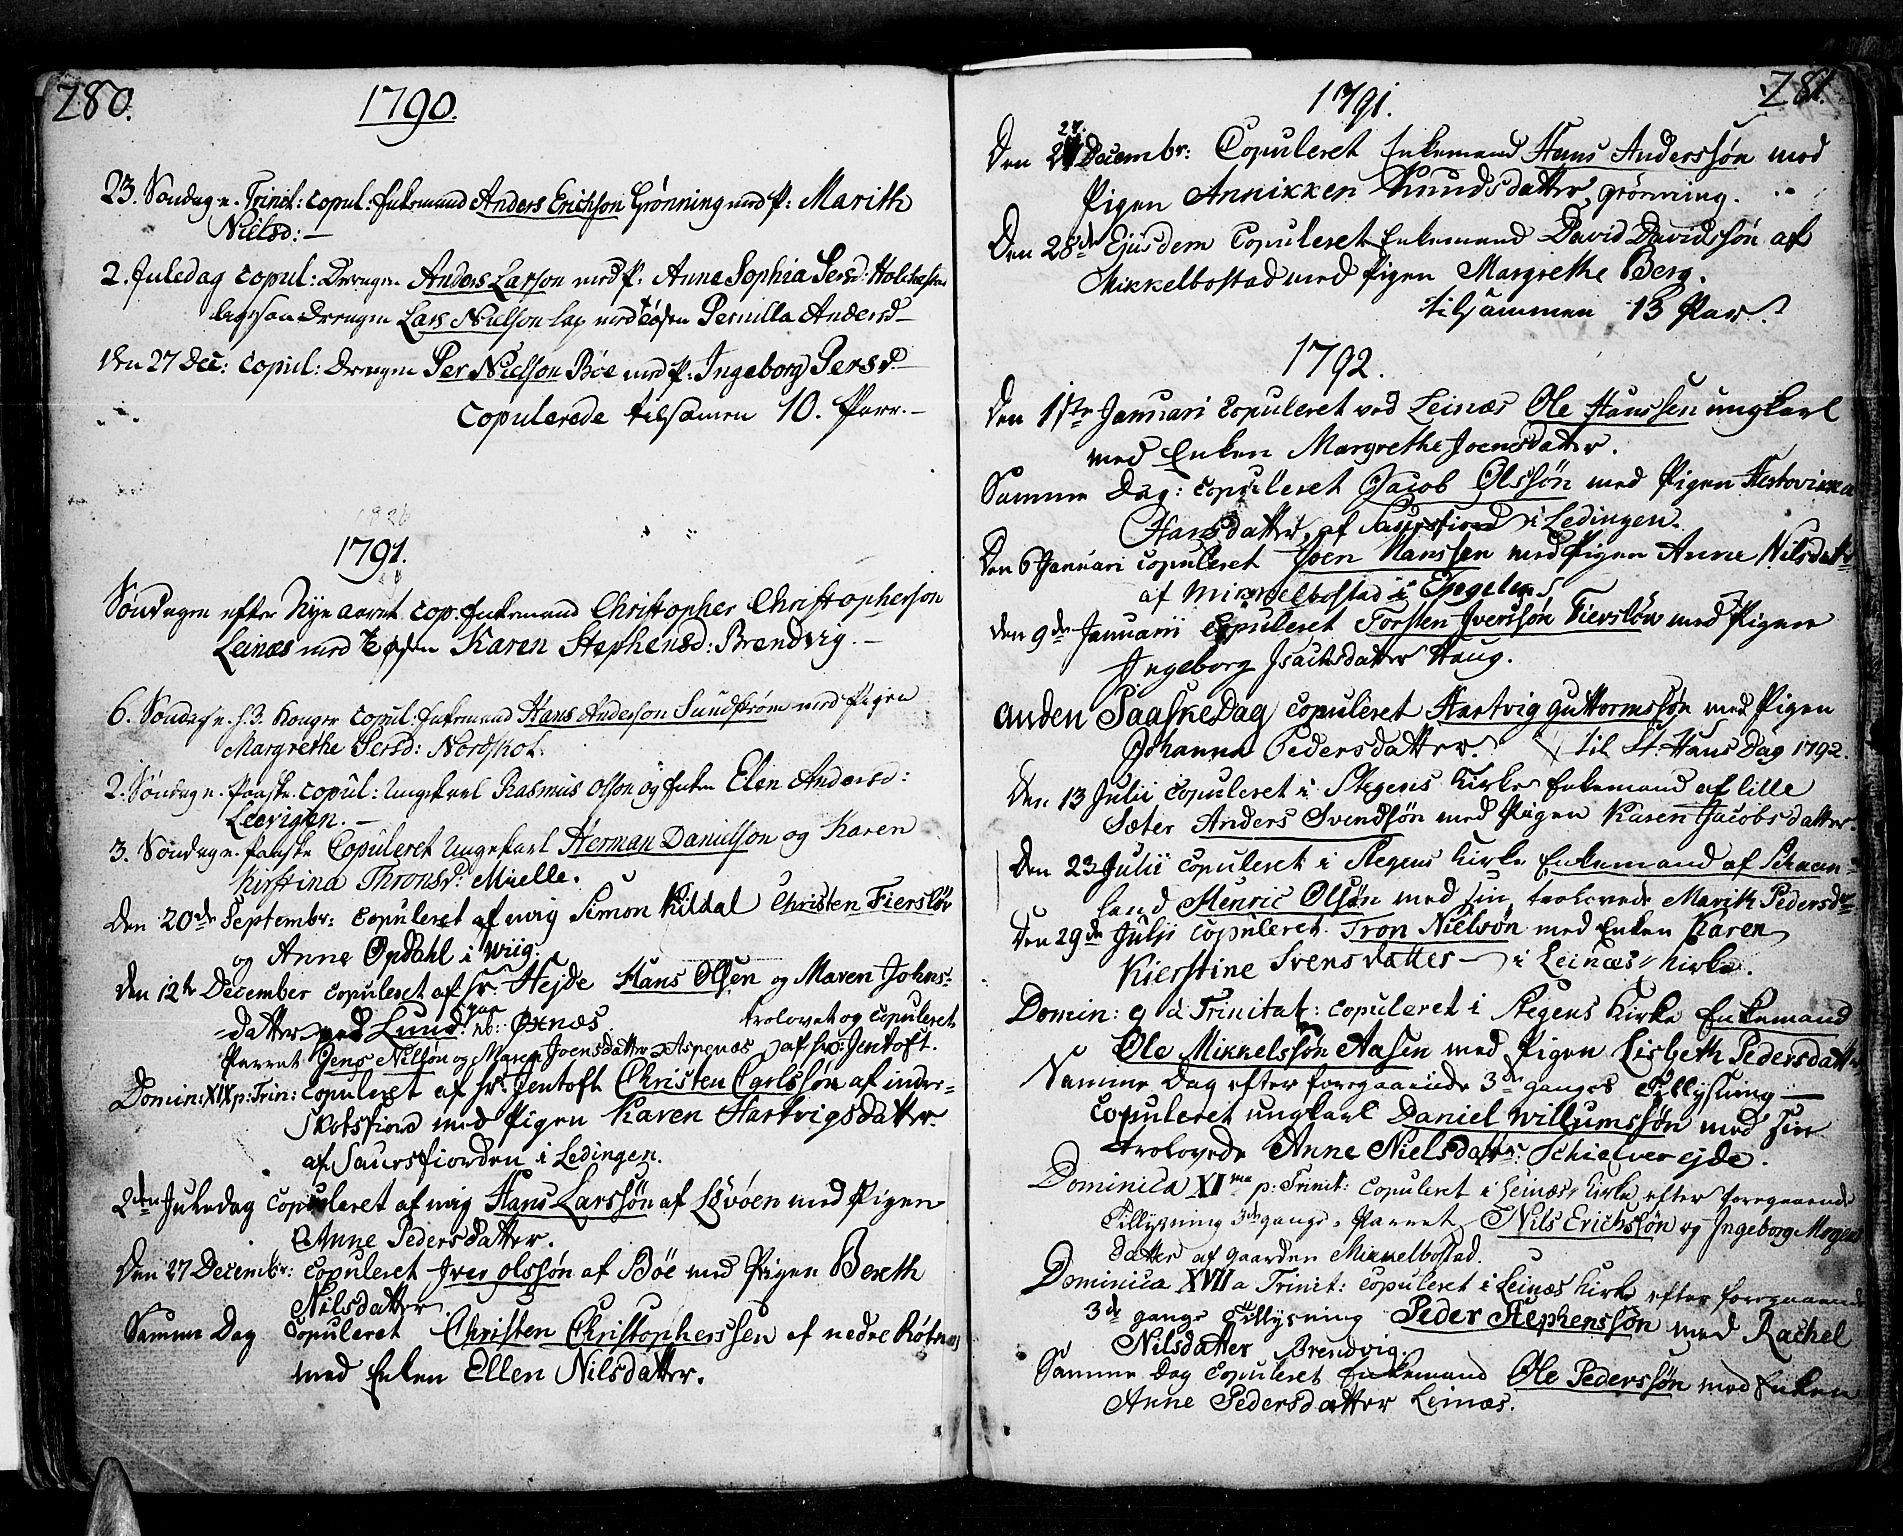 280.
1790.
23. Søndag e. Trinit: copul: Enkemand Anders Erichson Grønning med P: Marith
Nielsd: —
2. Juledag copul: Drengen Anders Larson med P: Anne Sophia Persd: Holckesen
ligesaa Drengen Lars Nielson Lap med Pigen Pernilla Andersd —
Den 27 Dec: copul: Drengen Per Nielson Böe med P: Ingeborg Persd —
Copulerede tilsamen 10. Parr. —
1791.
Søndagen efter Nye aaret cop. Enkemand Christopher Christopherson
Leinæs med Pigen Karen Stephensd: Brendvig. —
6. Søndag e. h. 3. Konger copul: Enkemand Hans Anderson Sundstrøm med Pigen
Margrethe Persd: Nordskot.
2. Søndag e. Paaske copul: Ungekarl Rasmus Olson og Enken Elen Andersd:
Leevigen. —
3. Søndag e. Paaske Copuleret Ungekarl Herman Danielson og Karen
Kirstina Thronsd: Mielle.
Den 20de Septembr: copuleret af mig Simon Kildal Christen Fiersløv
og Anne Opdahl i Wiig.
Den 12te December copuleret af Hr: Hejde Hans Olsen og Maren Johns-
datter ved Lund. nb: Øxnæs. trolovet og copuleret
Parret Jens Nilsøn og Maren Joensdatter Aspenæs af Hr: Jentoft.
Domin: XIX p: Trin: copuleret af Hr: Jentoft Christen Carlssøn af inder-
Skotsfiord med Pigen Karen Hartvigsdatter
af Saursfiorden i Ledingen.
2den Juledag copuleret af mig Hans Larssøn af Løvøen med Pigen
Anne Pedersdatter.
Den 27 Decembr: copuleret Iver Olssøn af Böe med Pigen Bereth
Nilsdatter.
Samme Dag copuleret Christen Christopherssen af nedre Røtnes
med Enken Ellen Nilsdatter.
281.
1791.
Den 27. Decembr: Copuleret Enkemand Hans Anderssøn med
Pigen Annikken Knudsdatter, grönning.
Den 28de Ejusdem Copuleret Enkemand David Davidssøn af
Mikkelbostad med Pigen Margrethe Berg.
tilsammen 13 Par.
1792.
Den 1ste Januari copuleret ved Leinæs Ole Hanssen ungkarl
med Enken Margrethe Joensdatter.
Samme Dag: copuleret Jacob Olssøn med Pigen
Hansdatter, af Saursfiord i Ledingen.
Den 6 Januari copuleret Joen Hanssen med Pigen Anne Nilsdatter
af Mikkelbostad i Engeløen.
Den 9de Januarii copuleret Torsten Iverssøn Fiersløv med Pigen
Ingeborg Isachsdatter Haug.
anden PaaskeDag copuleret Hartvig Guttormssøn med Pigen
Johanna Pedersdatter. til St. Hans Dag 1792.
Den 13 Julii copuleret i Stegens Kirke Enkemand af lille
Sæter Anders Svendsøn med Pigen Karen Jacobsdatter.
Den 23 Julii copuleret i Stegens Kirke Enkemand af Schaan-
land Henric Olsøn med sin trolovede Marith Pedersdr
Den 29de Julii copuleret Tron Nielsøn med Enken Karen
Kierstine Svensdatter — i Leinæs Kirke.
Domin: 9 à Trinitat: copuleret i Stegens Kirke Enkemand
Ole Mikkelssøn Aasen med Pigen Lisbeth Pedersdatter
Samme Dag efter foregaaende 3de ganges Tillysning —
Copuleret ungkarl Daniel Willumssøn med sin
trolovede Anne Nielsdatter Schielverejde.
Dominica XIma p: Trinit: copuleret i Leinæs Kirke efter foregaaende
Tillysning 3de gange, Parret Nils Erichssøn og Ingeborg Mogens
datter af gaarden Mikkelbostad.
Dominica XVII a Trinit: copuleret i Leinæs Kirke efter foregaaende
3de gange Tillysning Peder Stephenssøn med Rachel
Nilsdatter Brendvig.
Samme Dag copuleret Enkemand Ole Pederssøn med Enken
Anne Pedersdatter Leinæs.